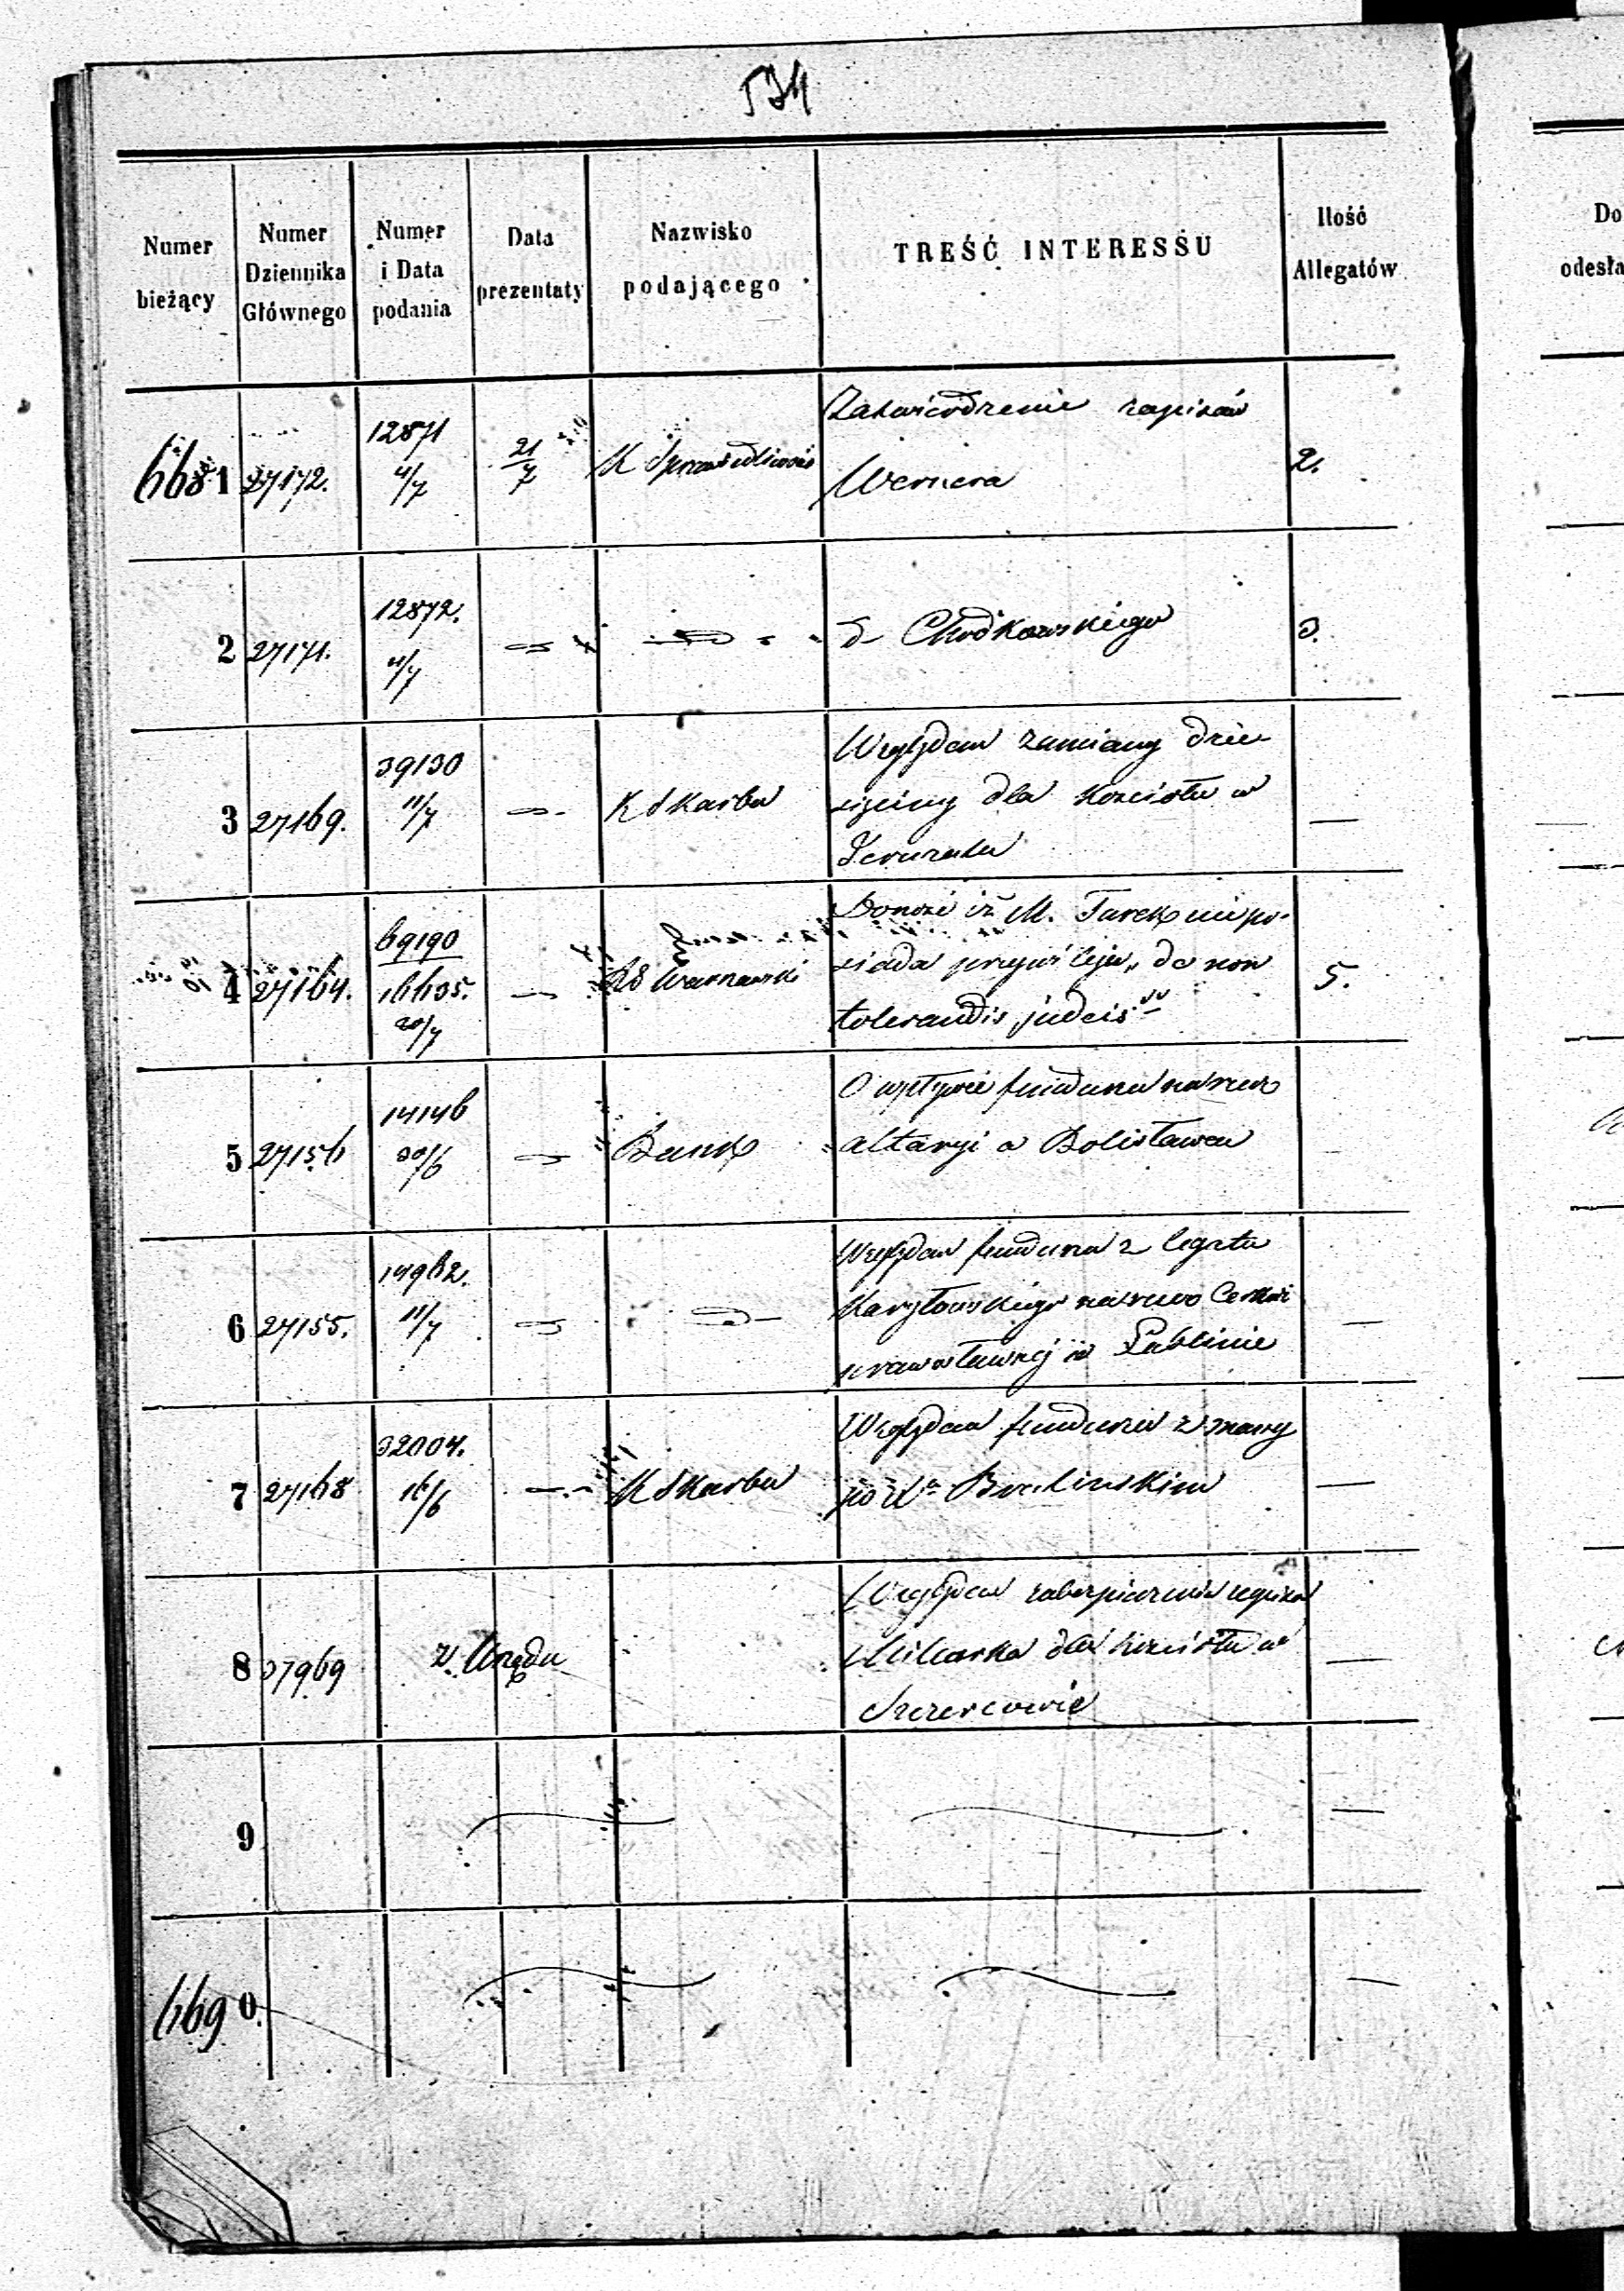 534
Numer bieżący
Numer Dziennika Głównego
Numer i Data podania
Data prezentaty
Nazwisko podającego
TREŚĆ INTERESSU
Ilość Allegatów
Do
odesła
6681 27172. 12871 4/7 21/7 K Sprawiedliwości Zatwierdzenie zapisów
Wernera 2.
2 27171. 12872. 4/7 d Chodkowskiego 3.
3 27169. 39130 11/7 K Skarbu Względem zamiany dzie-
sięciny dla Kościoła w
Jeruzalu —
4 27164. 69190 16635. 20/7 RG Warszawski Donosi iż M. Turek nie po-
siada przywileju „de non
tolerandis judeis” 5.
5 27156 14146 30/6 Bank O wpływie funduszu na rzecz
altaryi w Bolisławcu
6 27155. 14962. 11/7 Względem funduszu z legatu
na rzecz Cerkwi
prawosławnej w Lublinie —
7 27168 32004. 16/6 K Skarbu Względem funduszu z massy
po Bralińskim —
8 27969 z Urzędu Względem zabezpieczenia
dla kościoła w
Szczercowie —
9 —
6690. —